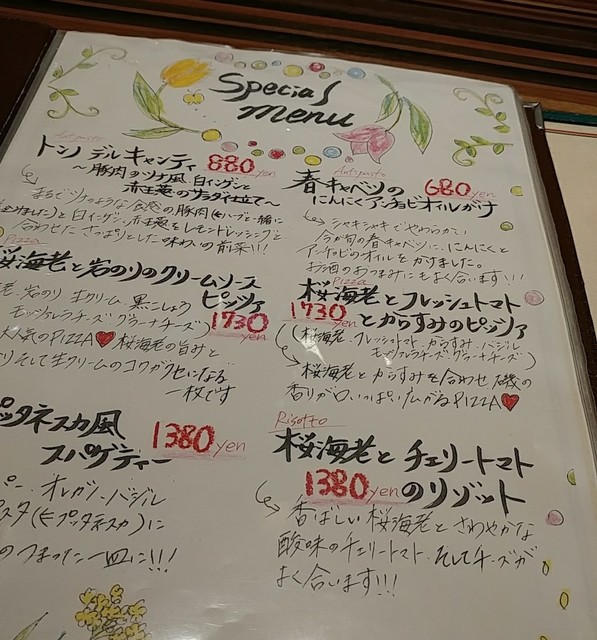 Special
menu
Antipasto
トンノ デル キャンティ 880yen
〜豚肉のツナ風、白インゲンと
赤玉葱のサラダ仕立て〜
まるでツナのような食感の豚肉
と白インゲン、赤玉葱をレモンドレッシングと
合わせたさっぱりとした味わいの前菜!!!
Antipasto
春キャベツの 680yen
にんにくアンチョビオイルがけ
シャキシャキでやわらかい
今が旬の春キャベツに、にんにくと
アンチョビのオイルをかけました。
お酒のおつまみにもよく合います!!!
Pizza
桜海老と岩のりのクリームソース
ピッツァ
1730yen
老、岩のり 生クリーム 黒こしょう
モッツァレラチーズ グラーナチーズ)
大人気のPIZZA♥ 桜海老の旨みと
りそして生クリームのコクがクセになる
一枚です
Pizza
桜海老とフレッシュトマト
1730yen とからすみのピッツァ
(桜海老、フレッシュトマト、からすみ、バジル
モッツァレラチーズ グラーナチーズ)
桜海老とからすみを合わせ磯の
香りが口いっぱい広がるPIZZA♥
ッタネスカ風
スパゲティー
1380yen
オレガノ、バジル
のつまった一皿に!!!
Risotto
桜海老とチェリートマト
1380yen のリゾット
香ばしい桜海老とさわやかな
酸味のチェリートマト、そしてチーズが
よく合います!!!